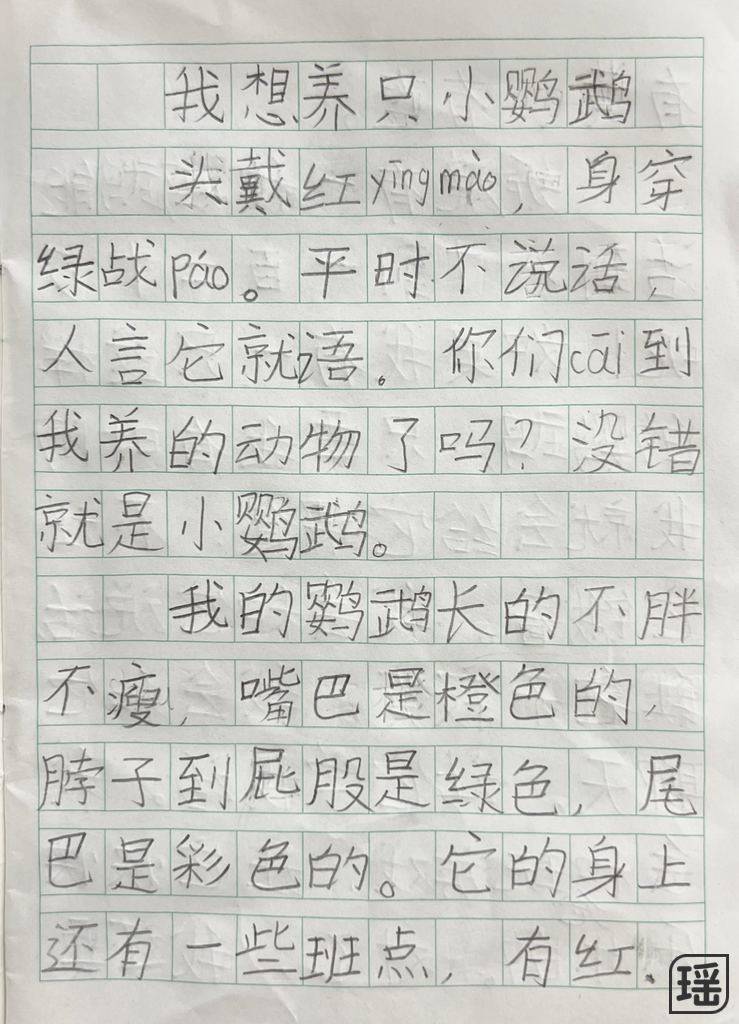 我想养只小鹦鹉
头戴红yīngmào，身穿
绿战páo。平时不说话，
人言它就语。你们cāi到
我养的动物了吗？没错
就是小鹦鹉。
我的鹦鹉长的不胖
不瘦，嘴巴是橙色的，
脖子到屁股是绿色，尾
巴是彩色的。它的身上
还有一些班点，有红、
瑶